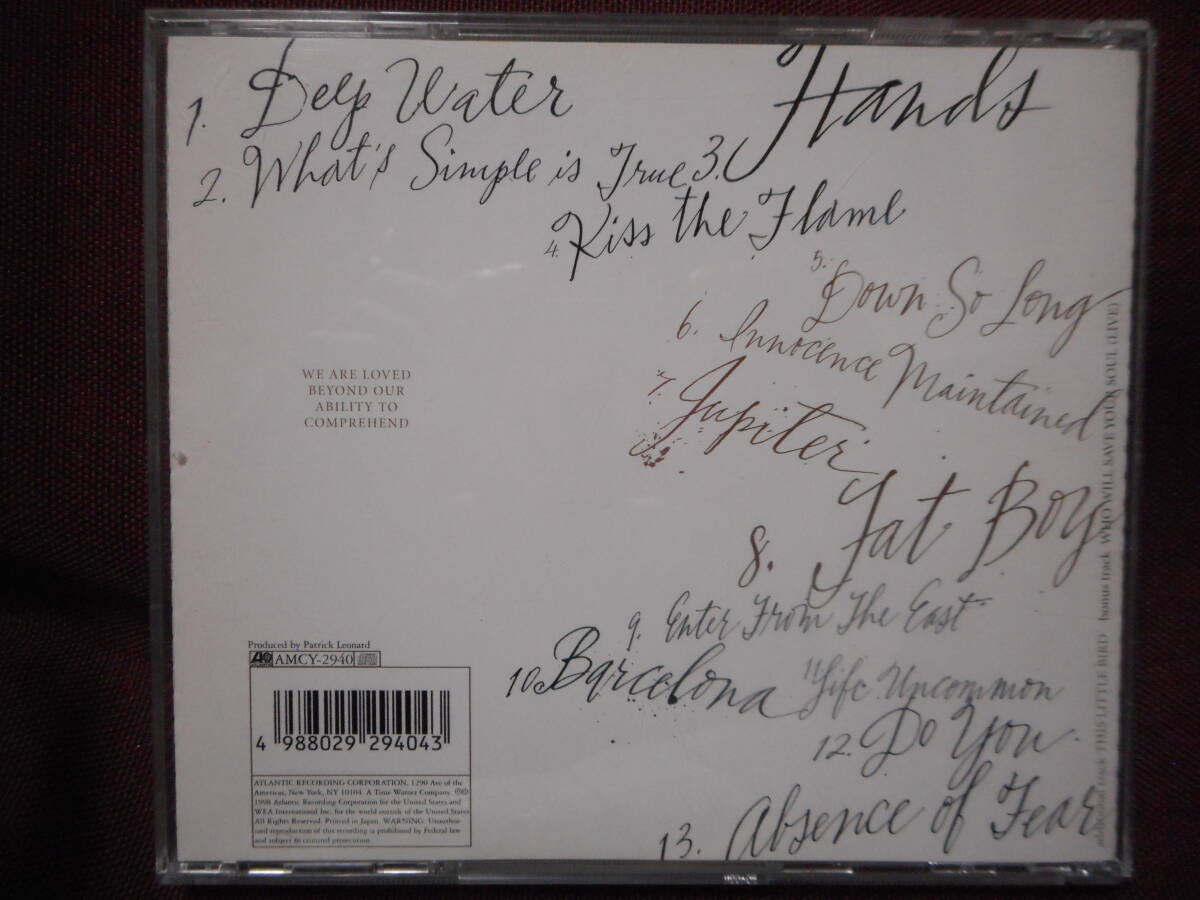 1. Deep Water
Hands
2. What's Simple is True 3.
4. Kiss the Flame
5. Down So Long
6. Innocence Maintained
7. Jupiter
8. Fat Boy
9. Enter From The East
10. Barcelona
11. Life Uncommon
12. Do You
13. Absence of Fear
WE ARE LOVED
BEYOND OUR
ABILITY TO
COMPREHEND
additional track THIS LITTLE BIRD bonus track WHO WILL SAVE YOUR SOUL (LIVE)
Produced by Patrick Leonard
ATLANTIC AMCY-2940
4 988029 294043
ATLANTIC RECORDING CORPORATION, 1290 Ave of the
Americas, New York, NY 10104. A Time Warner Company. ℗©
1998 Atlantic Recording Corporation for the United States and
WEA International Inc. for the world outside of the United States
All Rights Reserved. Printed in Japan. WARNING: Unauthor-
ized reproduction of this recording is prohibited by Federal law
and subject to criminal prosecution.